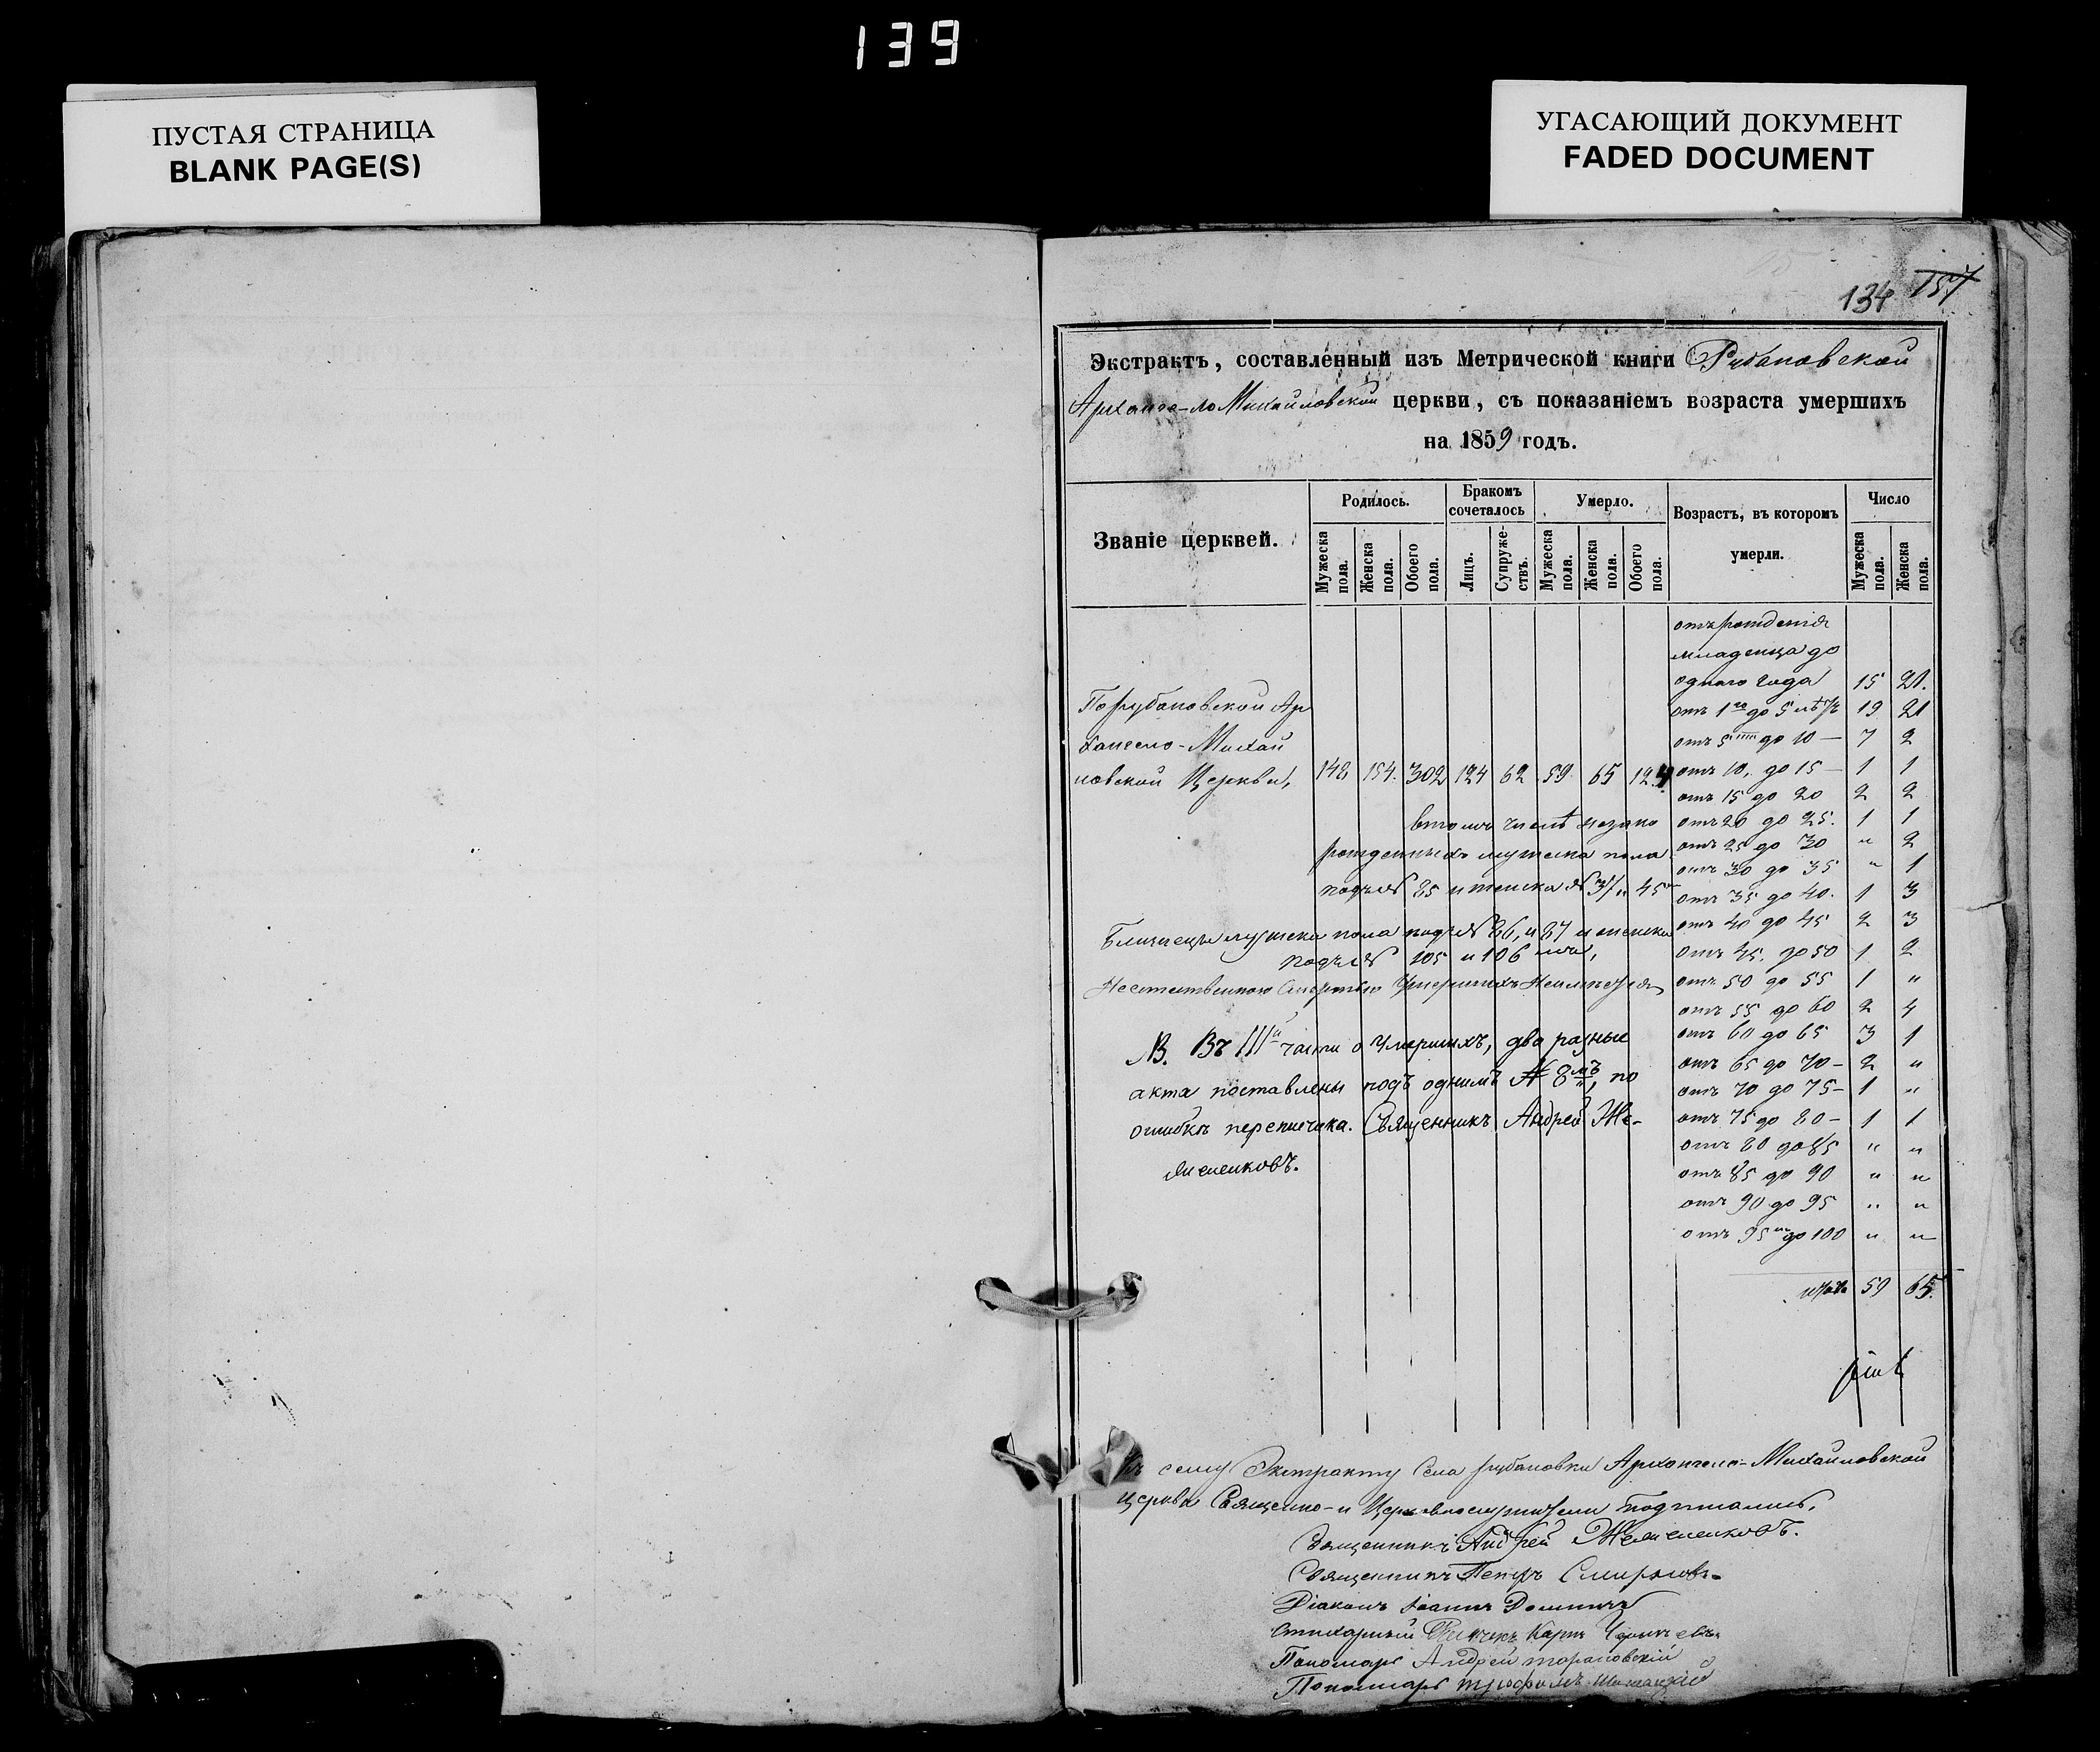 139
ПУСТАЯ СТРАНИЦА
BLANK PAGE(S)
УГАСАЮЩИЙ ДОКУМЕНТ
FADED DOCUMENT
134 157
Экстрактъ, составленный изъ Метрической книги Рубановской
Архангело-Михайловской церкви, съ показаніемъ возраста умершихъ
на 1859 годъ.
Званіе церквей.
Родилось.
Бракомъ сочеталось
Умерло.
Возрастъ, въ которомъ умерли.
Число
Мужеска пола.
Женска пола.
Обоего пола.
Лицъ.
Супружествъ.
Мужеска пола.
Женска пола.
Обоего пола.
Мужеска пола.
Женска пола.
отъ рожденія
младенца до
одного года 15 21.
По Рубановской Ар
отъ 1го до 5 лѣтъ 19 21
хангело-Михай
отъ 5 до 10 — 7 2
ловской Церкви, 148 154. 302 124 62 59 65 124 отъ 10, до 15 — 1 1
отъ 15 до 20 2 2
втомъ числѣ незако отъ 20 до 25. 1 1
рожденныхъ мужеска пола отъ 25 до 30 " 2
отъ 30 до 35 " 1
подъ № 85 и женска № 37 и 45 отъ 35 до 40. 1 3
Близнецы мужска пола подъ № 86, и 87 и женска отъ 40 до 45 2 3
подъ № 105 и 106 отъ 45. до 50 1 2
Неестественною Смертью Умершихъ Неимѣется отъ 50 до 55 1 "
отъ 55 до 60 2 4
NB. Въ IIIй части о Умершихъ, два разные отъ 60 до 65 3 1
отъ 65 до 70 — 2 "
акта поставлены подъ однимъ № 8мъ, по отъ 70 до 75 — 1 "
ошибкѣ переписчика. Священникъ Андрей Же- отъ 75 до 80 — 1 1
отъ 80 до 85 " "
отъ 85 до 90 " "
отъ 90 до 95 " "
отъ 95 до 100 " "
итого 59 65.
Къ сему Экстракту Села Рубановки Архангело-Михайловской
Церкви Священно-и Церковнослужители подписались.
Священникъ Андрей
Священникъ Петръ Смирновъ
Діаконъ Іоаннъ
Стихарный Карпъ
Пономарь Андрей
Пономарь Трофимъ